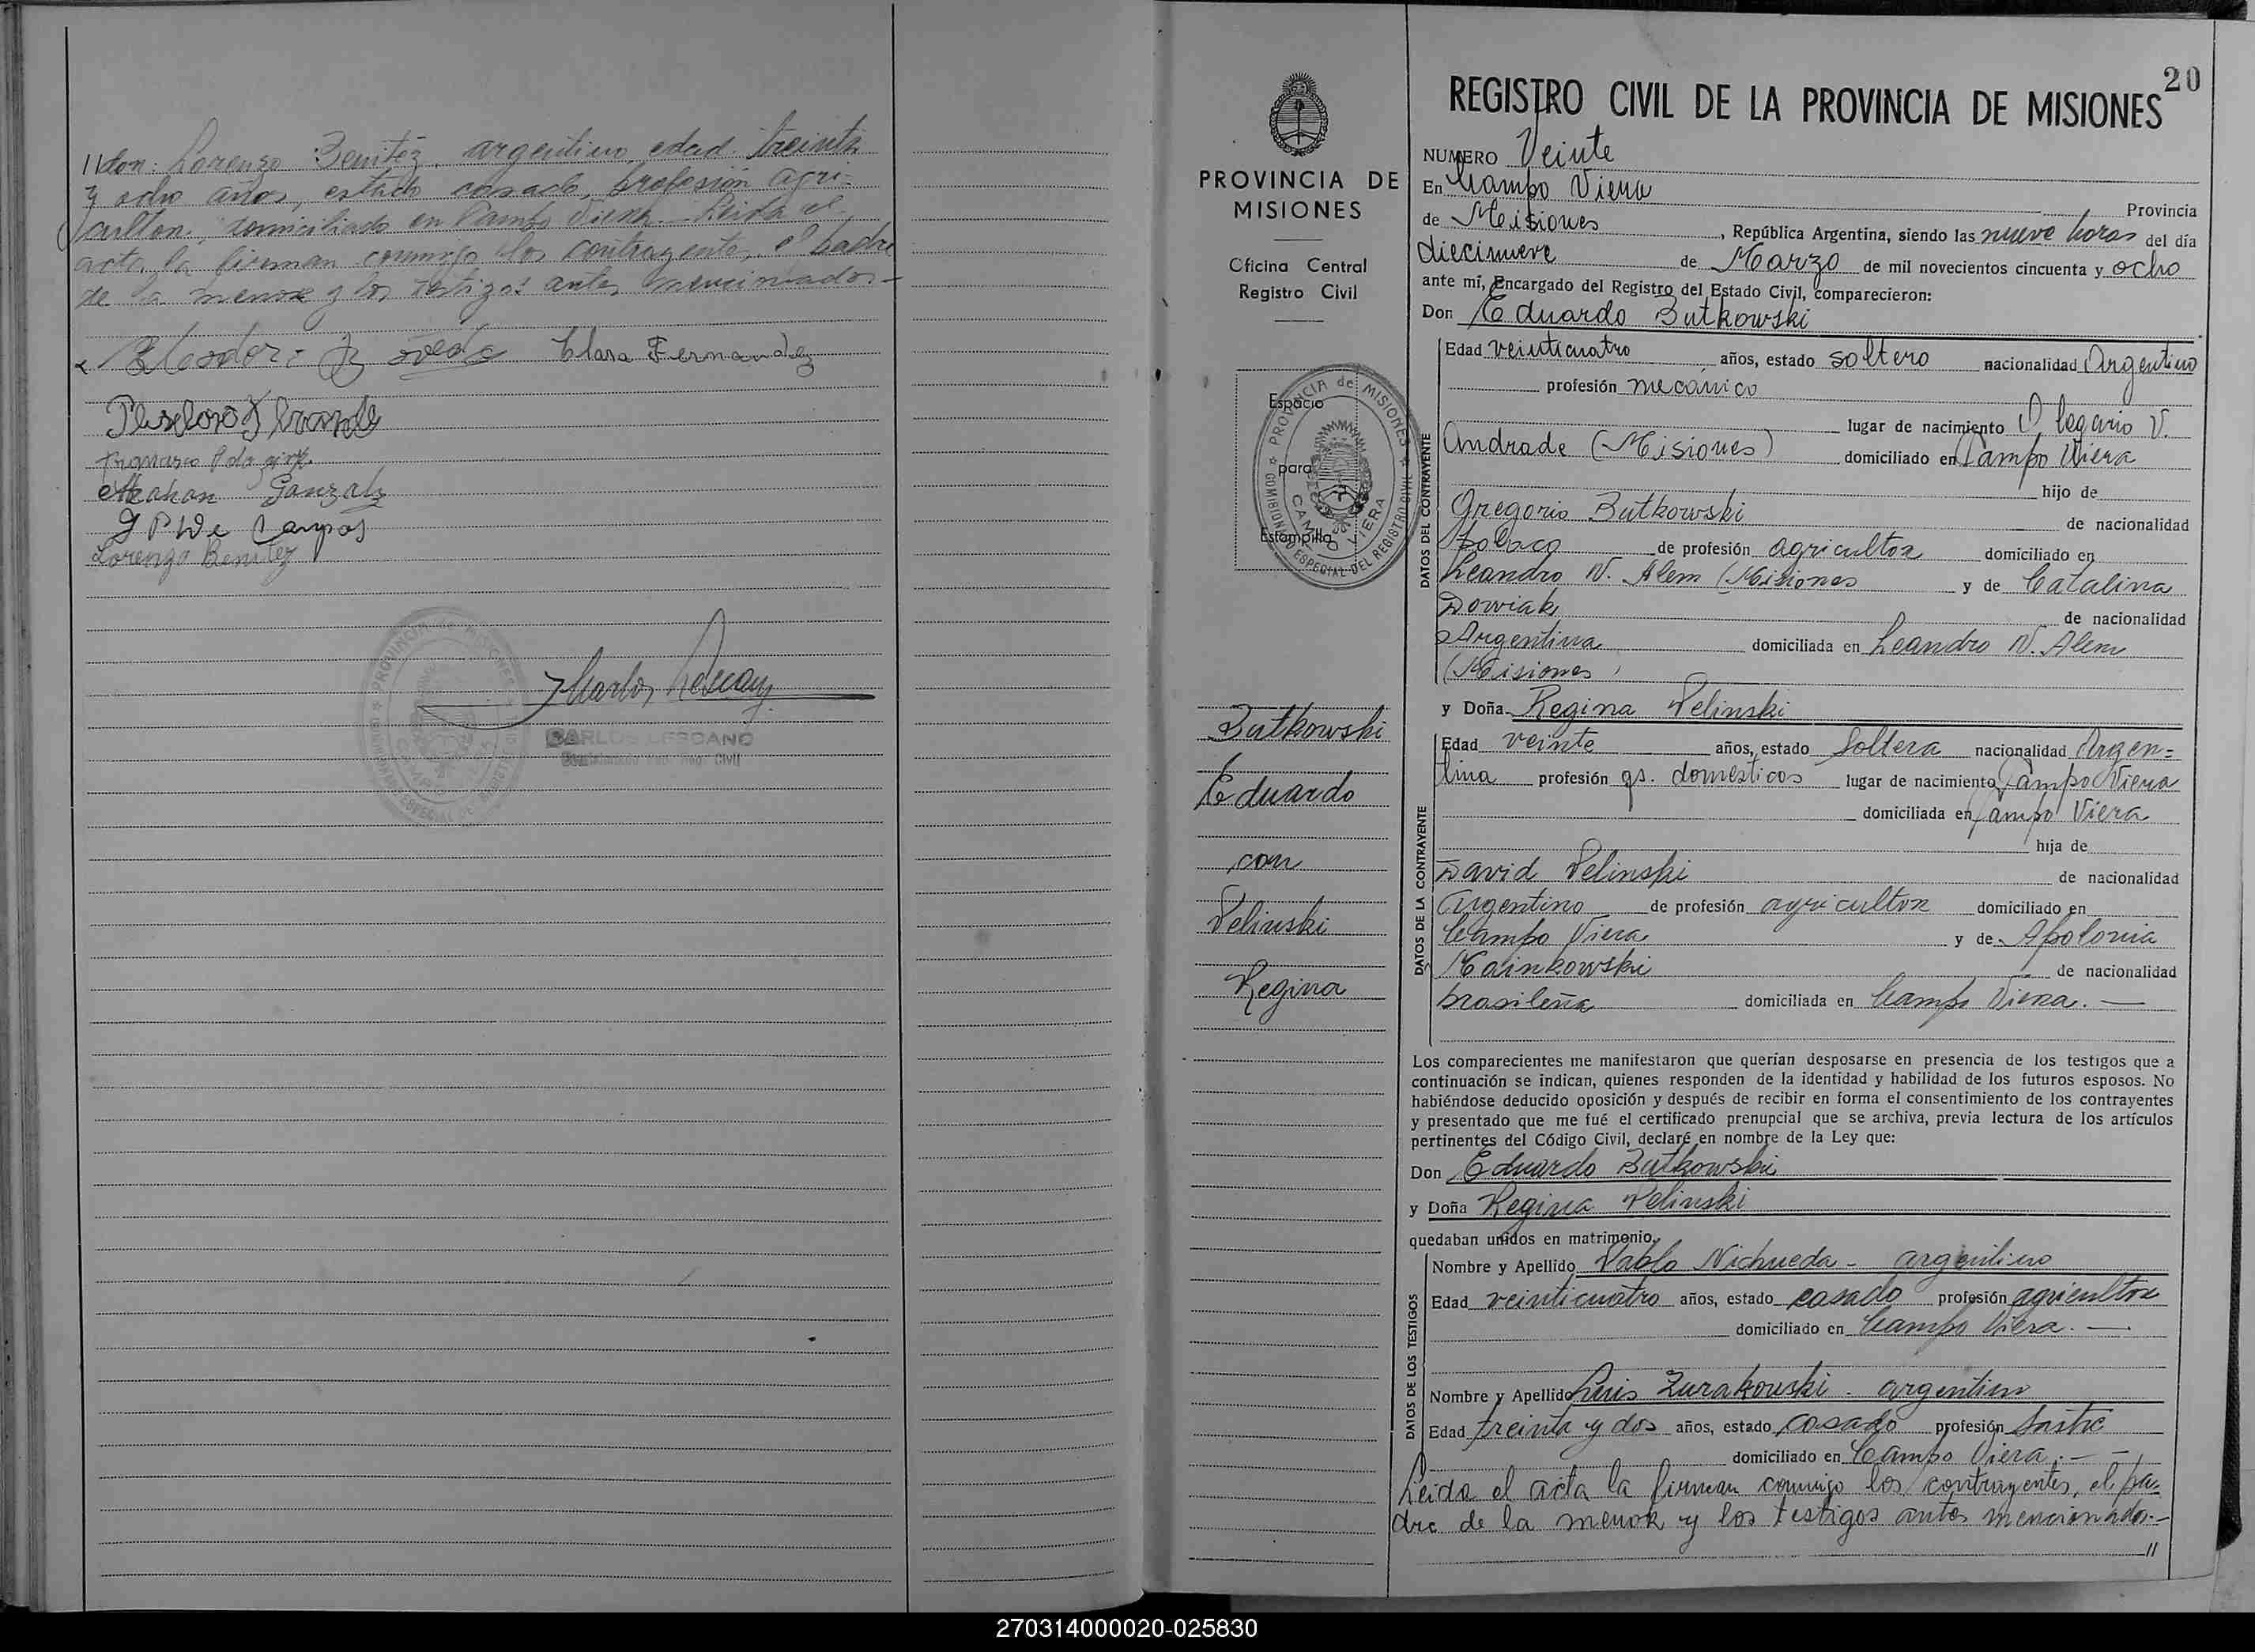 // don: Lorenzo Benitez, argentino, edad treinta
y ocho años, estado casado, profesión agri-
cultor, domiciliado en Campo Viera.- Leida el
acta, la firman conmigo los contrayentes, el padre
de la menor y los testigos antes mencionados.-
Clara Fernandez
Gonzalez
Campos
Lorenzo Benitez
CARLOS LESCANO
20
REGISTRO CIVIL DE LA PROVINCIA DE MISIONES
PROVINCIA DE
MISIONES
Oficina Central
Registro Civil
Espacio
para
Estampilla
PROVINCIA de MISIONES
COMISIONADO ESPECIAL DEL REGISTRO CIVIL
CAMPO VIERA
Butkowski
Eduardo
con
Pelinski
Regina
NUMERO Veinte
En Campo Viera Provincia
de Misiones, República Argentina, siendo las nueve horas del día
diecinueve de Marzo de mil novecientos cincuenta y ocho
ante mí, Encargado del Registro del Estado Civil, comparecieron:
Don Eduardo Butkowski
DATOS DEL CONTRAYENTE
Edad veinticuatro años, estado soltero nacionalidad Argentino
profesión mecánico
lugar de nacimiento Olegario V.
Andrade (Misiones) domiciliado en Campo Viera
hijo de
Gregorio Butkowski de nacionalidad
polaco de profesión agricultor domiciliado en
Leandro N. Alem (Misiones y de Catalina
Dowiak de nacionalidad
Argentina domiciliada en Leandro N. Alem
(Misiones)
y Doña Regina Pelinski
DATOS DE LA CONTRAYENTE
Edad veinte años, estado Soltera nacionalidad Argen=
tina profesión qs. domesticos lugar de nacimiento Campo Viera
domiciliada en Campo Viera
hija de
David Pelinski de nacionalidad
Argentino de profesión agricultor domiciliado en
Campo Viera y de Apolonia
Mainkowski de nacionalidad
brasileña domiciliada en Campo Viera.-
Los comparecientes me manifestaron que querían desposarse en presencia de los testigos que a
continuación se indican, quienes responden de la identidad y habilidad de los futuros esposos. No
habiéndose deducido oposición y después de recibir en forma el consentimiento de los contrayentes
y presentado que me fué el certificado prenupcial que se archiva, previa lectura de los artículos
pertinentes del Código Civil, declaré en nombre de la Ley que:
Don Eduardo Butkowski
y Doña Regina Pelinski
quedaban unidos en matrimonio.
DATOS DE LOS TESTIGOS
Nombre y Apellido Pablo Nichueda - argentino
Edad veinticuatro años, estado casado profesión agricultor
domiciliado en Campo Viera.-
Nombre y Apellido Luis Zurakouski - argentino
Edad treinta y dos años, estado casado profesión Sastre
domiciliado en Campo Viera.-
Leida el acta la firman conmigo los contrayentes, el pa-
dre de la menor y los testigos antes mencionados.-
//
270314000020-025830